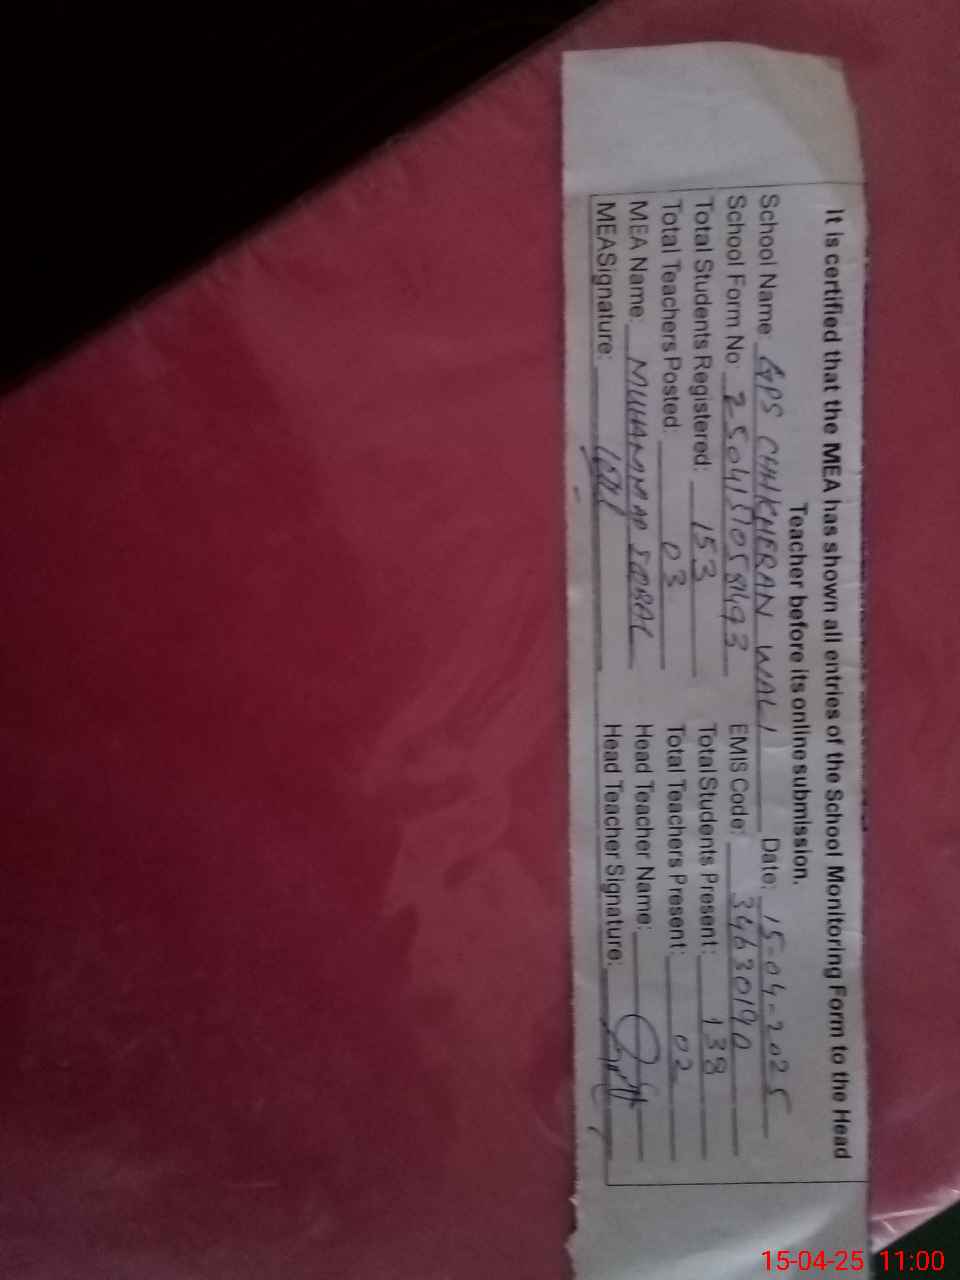 It is certified that the MEA has shown all entries of the School Monitoring Form to the Head
Teacher before its online submission.
School Name: GPS CHHKHERAN WALI Date: 15-04-2025
School Form No: EMIS Code: 34630190
Total Students Registered: 153 Total Students Present: 138
Total Teachers Posted: 03 Total Teachers Present: 02
MEA Name: MUHAMMAD IQBAL Head Teacher Name:
MEASignature: Head Teacher Signature:
15-04-25 11:00